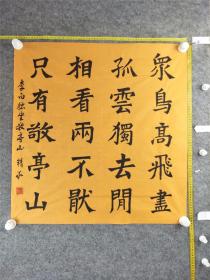 眾鳥高飛盡
孤雲獨去閒
相看兩不厭
只有敬亭山
李白獨坐敬亭山